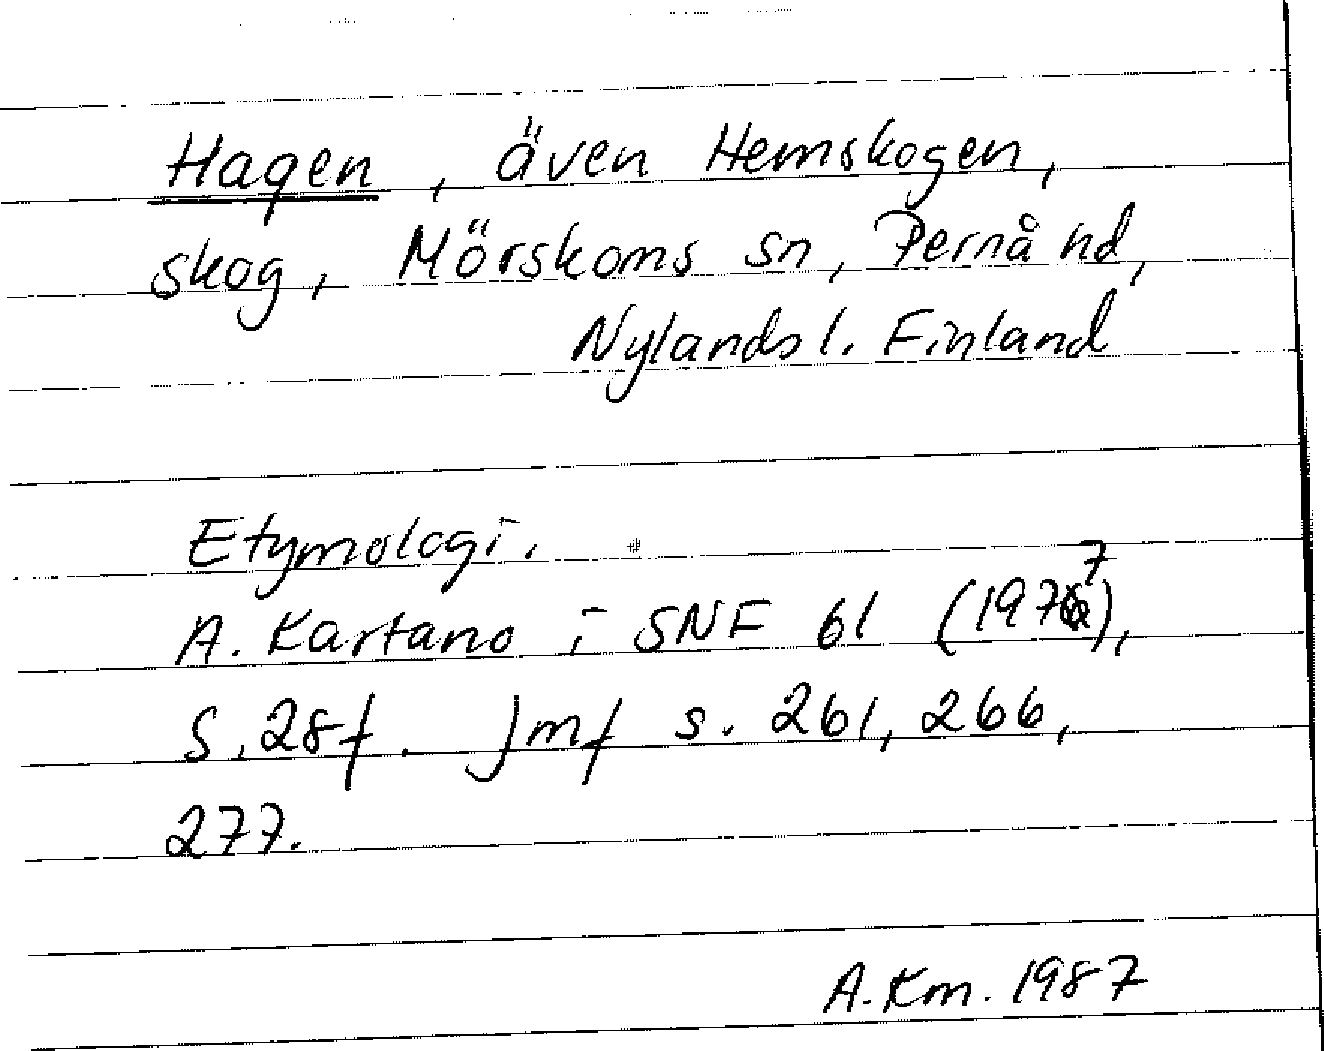 Hagen, även Hemskogen,
skog, Mörskoms sn, Pernå hd,
Nylands l. Finland
Etymologi.
A. Kartano i SNF 61 (1977),
S. 28f. Jmf s. 261, 266,
277.
A.Km. 1987